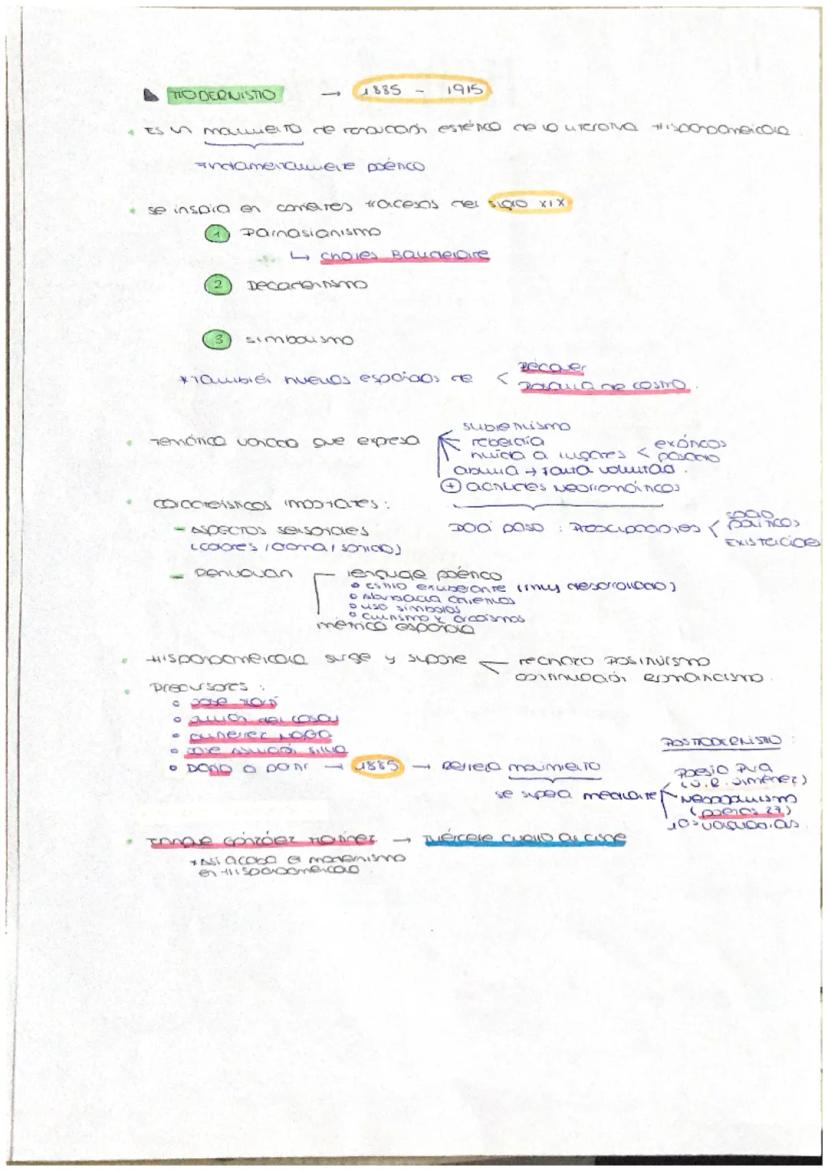 MODERNISMO → 1885 - 1915
• Es un movimiento de renovación estética de la literatura Hispanoamericana.
Fundamentalmente poético
• Se inspira en corrientes francesas del siglo XIX
1 Parnasianismo
↳ Charles Baudelaire
2 Decadentismo
3 Simbolismo
*También nuevos españoles de < Bécquer
Rosalía de Castro.
• Temática variada que expresa
subjetivismo
rebeldía
huida a lugares < exóticos
pasado
abulia → falta voluntad.
+ actitudes neorrománticas
• características importantes:
- Aspectos sensoriales
(colores / aroma / sonido)
Dará paso: Preocupaciones <
políticos
existencial
- Renuevan
lenguaje poético
• Estilo exuberante (muy desarrollado)
• Abundancia
• uso símbolos
• cultismo y arcaísmos
métrica española
• Hispanoamérica surge y supone
rechazo positivismo
continuación romanticismo.
• Precursores:
• José Martí
• Julián del Casal
• Gutiérrez Nájera
• José Asunción Silva
• → 1885 → movimiento
se supera mediante
POSTMODERNISMO:
Poesía Pura
(J.R. Jiménez)
Neopopulismo
(poetas 27)
los vanguardias.
• Enrique González Martínez → Tuércele cuello al cisne
*Así acaba el modernismo
en Hispanoamérica.